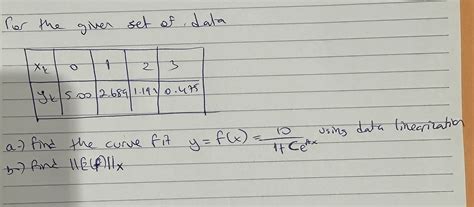 For the given set of data
xₖ 0 1 2 3
yₖ 5.00 2.689 1.192 0.475
a-) find the curve fit y = f(x) = 10 / 1+Ceᴬˣ using data linearization
b-) find ||E(f)||